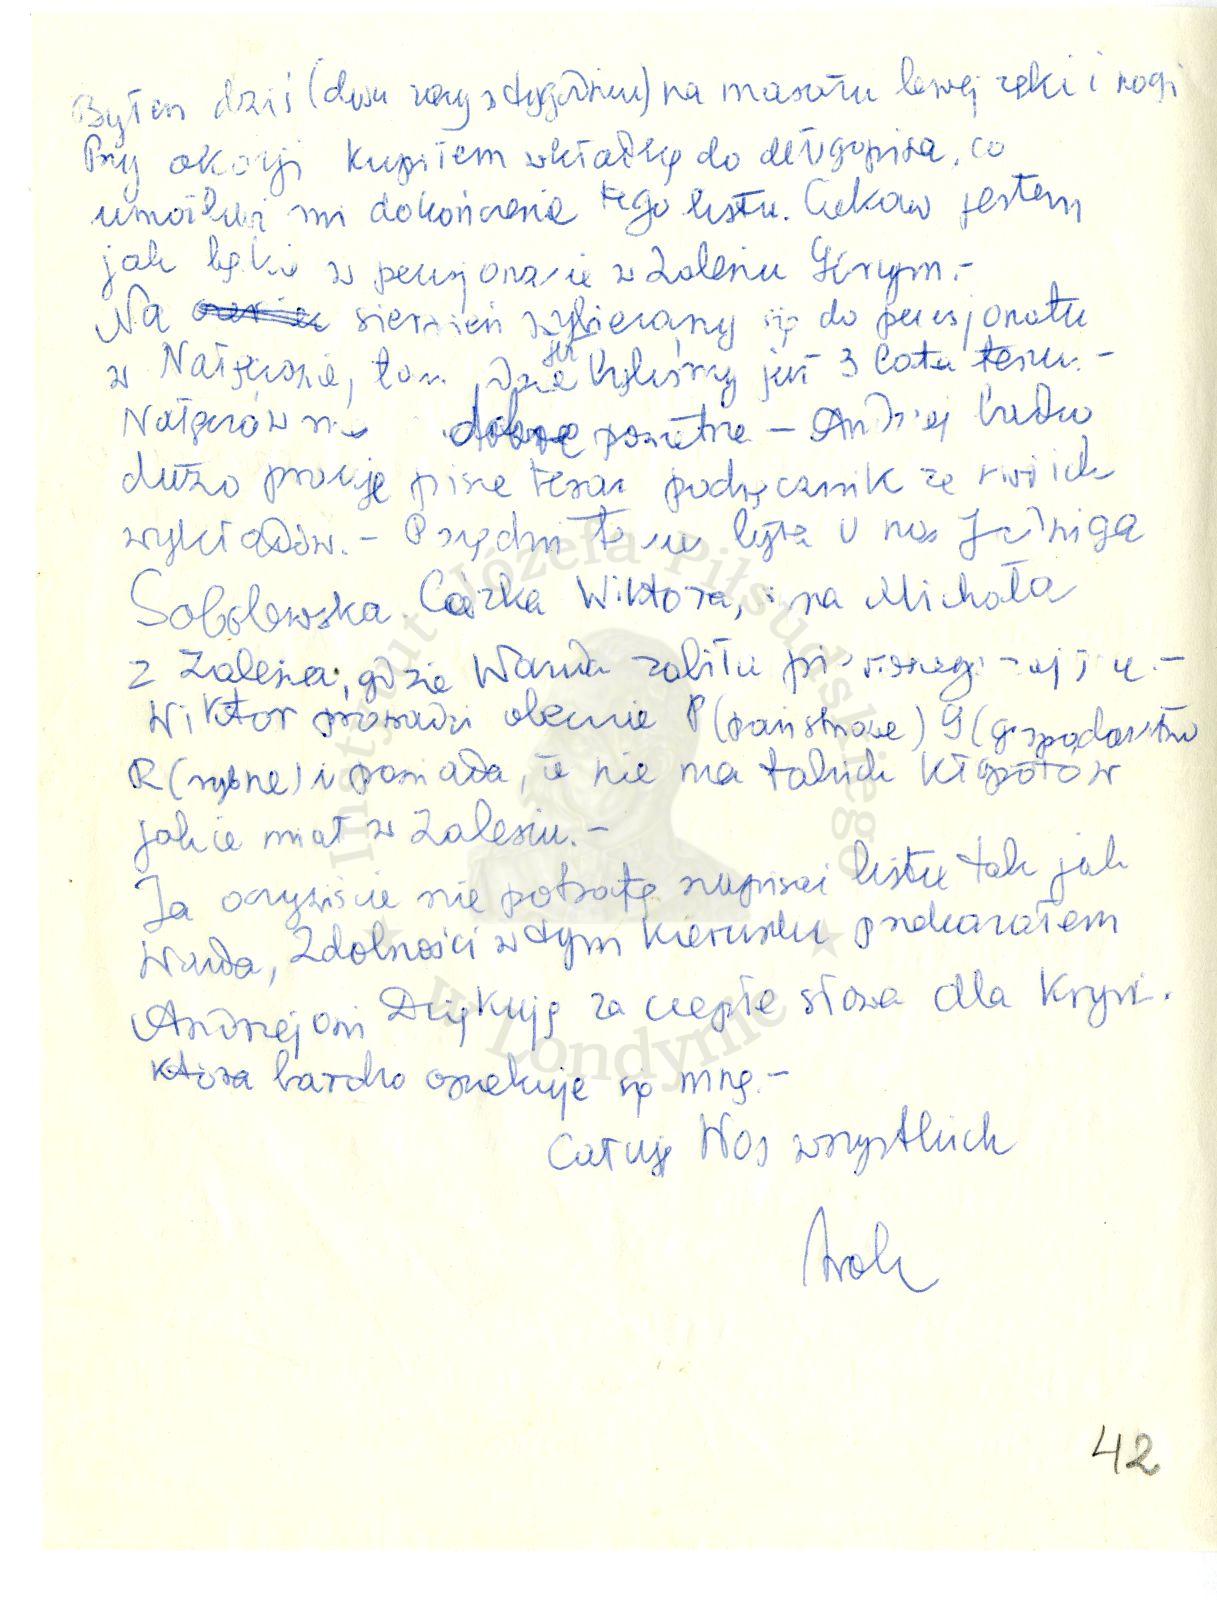 Byłem dziś (dwa razy w tygodniu) na masażu lewej ręki i nogi
Przy okazji kupiłem wkładkę do długopisa, co
umożliwi mi dokończenie tego listu. Ciekaw jestem
jak będzie w pensjonacie w Zalesiu Górnym.-
Na sierpień wybieramy się do pensjonatu
w Nałęczowie, tam, gdzie byliśmy już 3 lata temu.-
Nałęczów ma dobre powietrze - Andrzej bardzo
dużo pracuje pisze teraz podręcznik ze swoich
wykładów.- Przedtem była u nas Jadwiga
Sobolewska Córka Wiktora, i na Michała
z Zalesia, gdzie Wanda zabiła
Wiktor prowadzi obecnie P(państwowe) G(gospodarstwo
R(rybne) i powiada, że nie ma takich kłopotów
jakie miał w Zalesiu.-
Ja oczywiście nie potrafię napisać listu tak jak
Wanda, Zdolności w tym kierunku przekazałem
Andrzejowi Dziękuję za ciepłe słowa dla Krysi.
która bardzo opiekuje się mną.-
Całuję Was wszystkich
42
Instytut Józefa Piłsudskiego
w Londynie